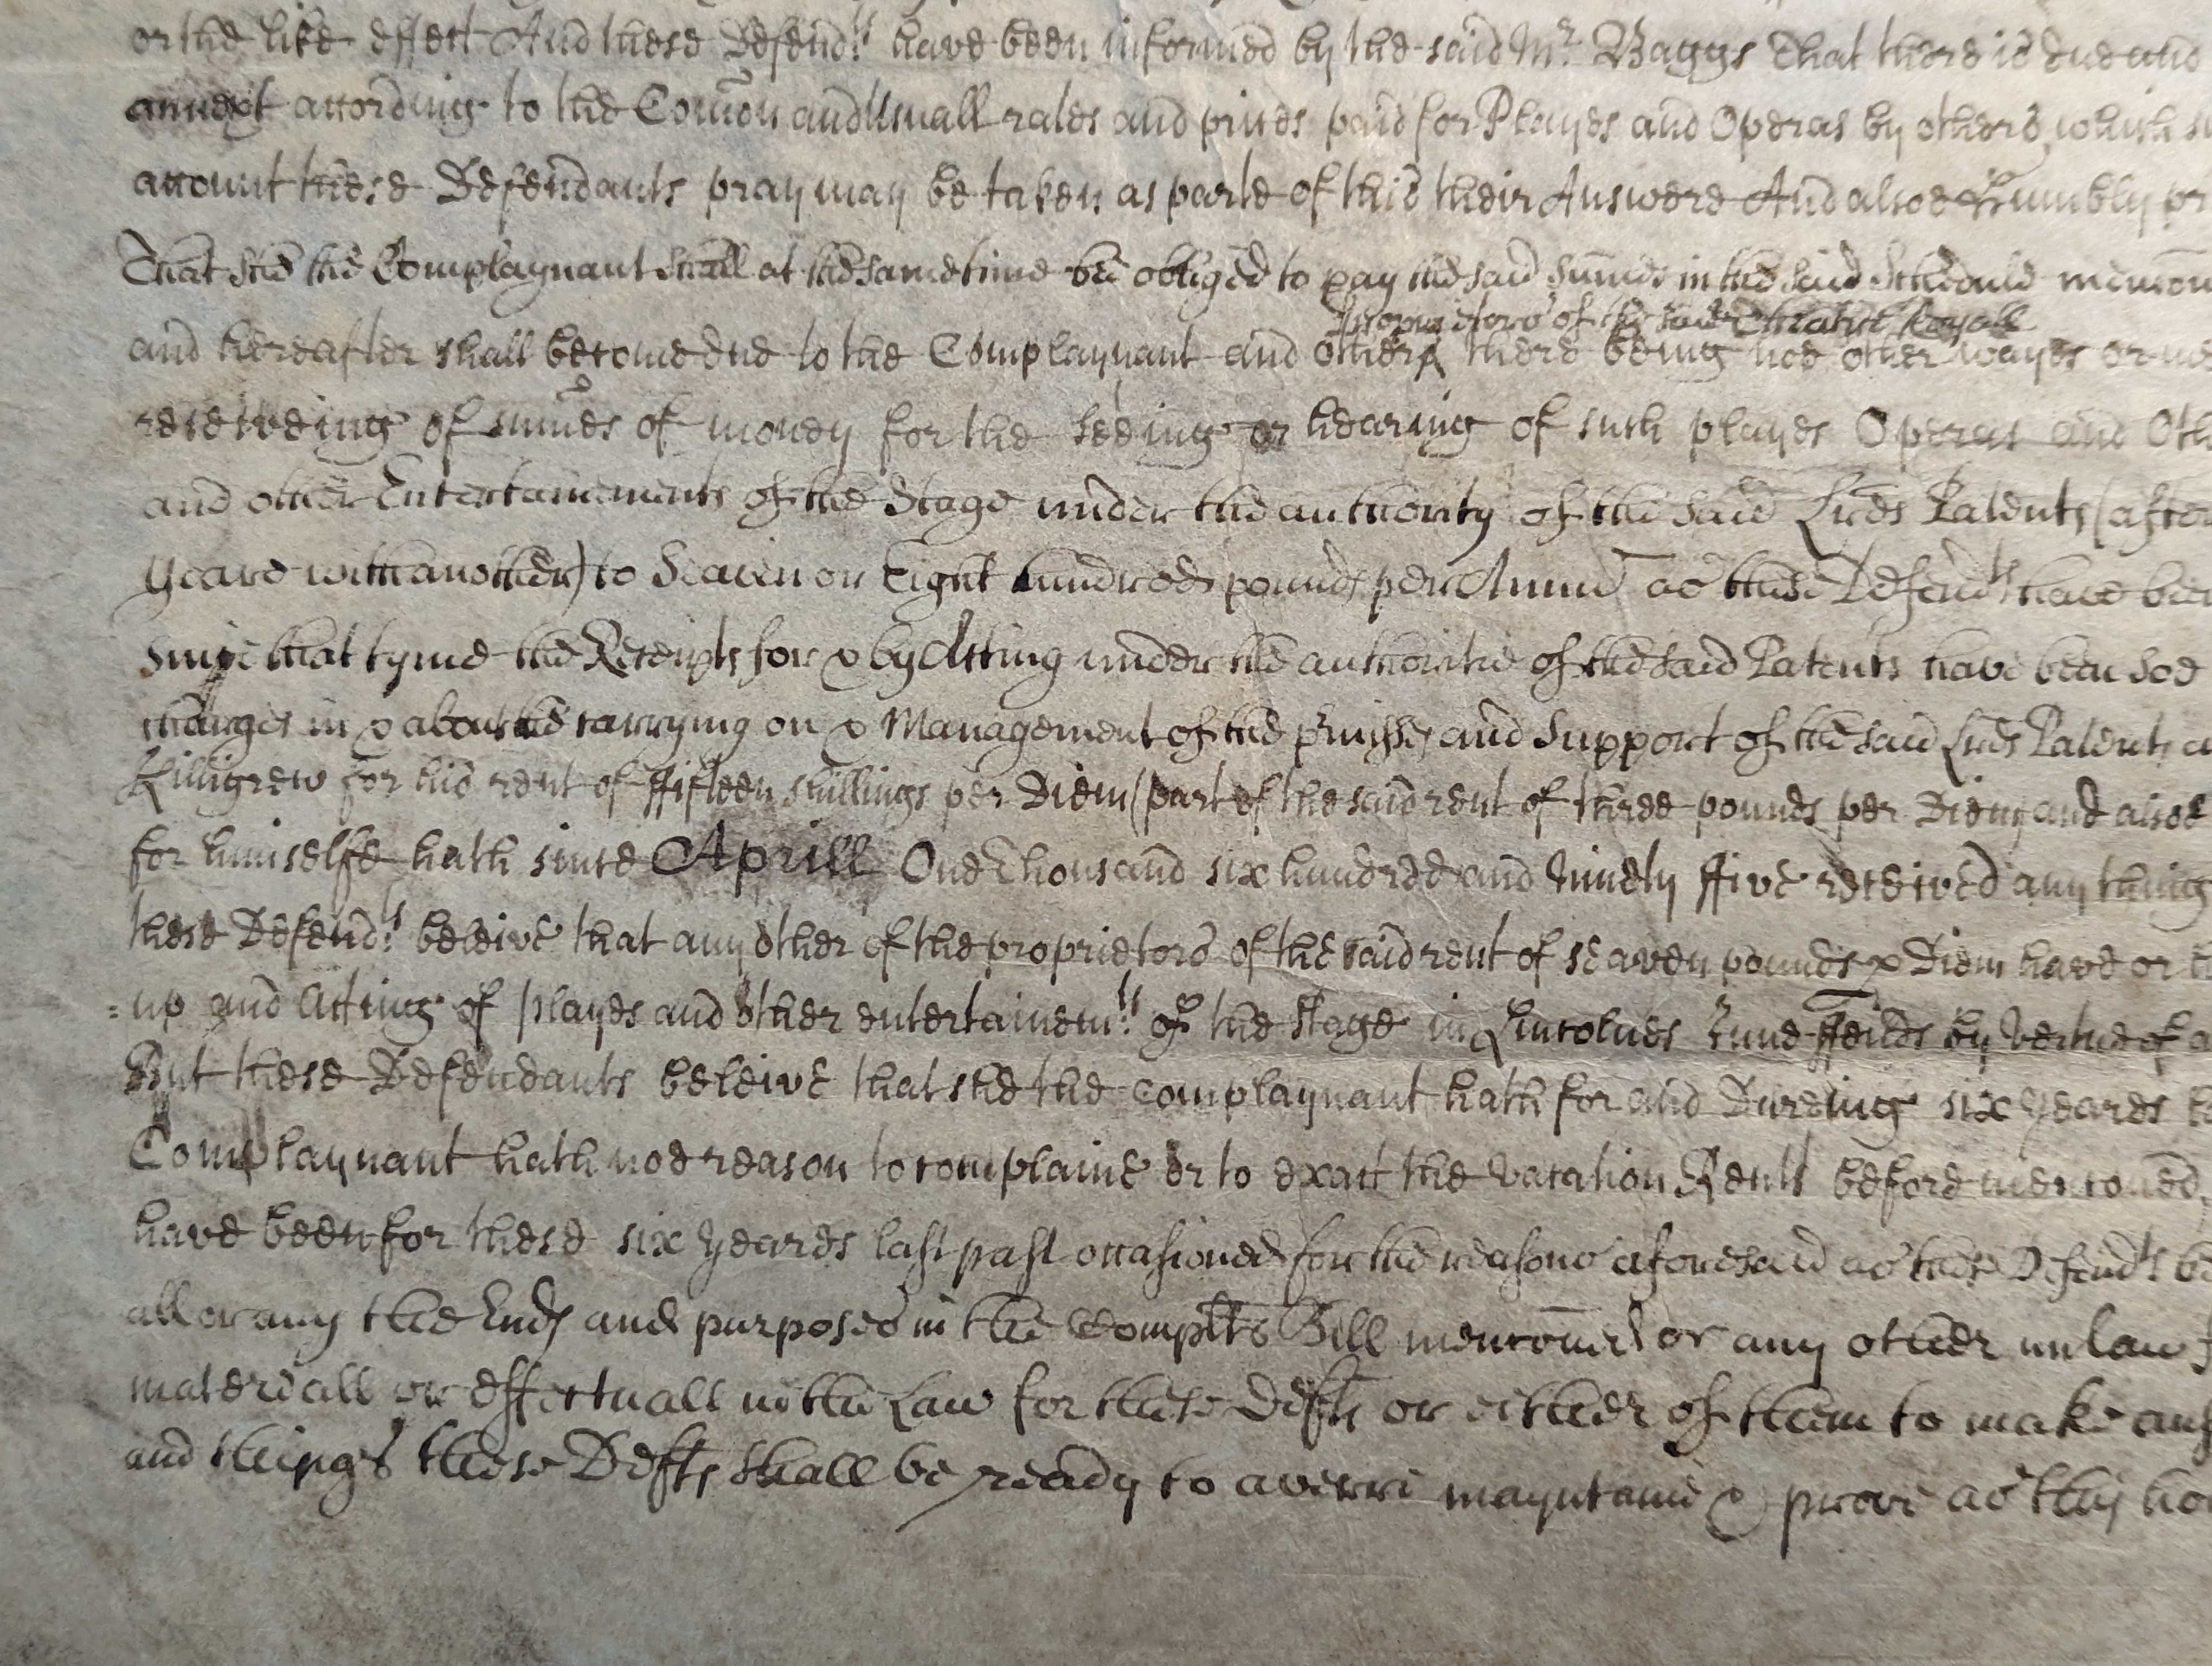 or the like effect And these Defend.ts have been informed by the said Mr. Baggs That there is due and
annext according to the Com̃on and Usuall rates and prices paid for Playes and Operas by others, which
account these Defendants pray may be taken as parte of this their Answere And alsoe Humbly
That shee the Complaynant shall at the same time bee obliged to pay the said Sum̃es in the said Schedule
proprietors of the said Theatre Royall
and hereafter shall become due to the Complaynant and others there being noe other wayes or
receiveing of sum̃es of money for the seeing or hearing of such playes Operas and
and other Entertainements of the Stage under the authority of the said Lr̃es Patents (after
Yeare with another) to Seaven or Eight hundred pounds per Annum as these Defend.ts have
Since that tyme the Receipts for & by Acting under the authoritie of the said Patents have been soe
charges in & about the carrying on & Management of the and Support of the said Lr̃es Patents
Killigrew for his rent of ffifteen shillings per Diem (part of the said rent of three pounds per Diem and alsoe
for himselfe hath since Aprill One Thousand six hundred and Ninety ffive received any thing
these Defend.ts beleive that any other of the proprietors of the said rent of seaven pounds p Diem have or
=up and Acting of playes and other entertainem.ts of the Stage in Lincolnes Inne ffeilds by Vertue of
But these Defendants beleive that shee the Complaynant hath for and Dureing six yeares
Complaynant hath noe reason to complaine or to exact the Vacation Rents before menc̃oned
have been for these six yeares last past occasioned for the reasons aforesaid as these Defend.ts
all or any the Ends and purposes in the Complts Bill menc̃oned or any other
materiall or effectuall in the Law for these Defts or either of them to make any
and things these Defts shall be ready to averre mayntaine & prove as this